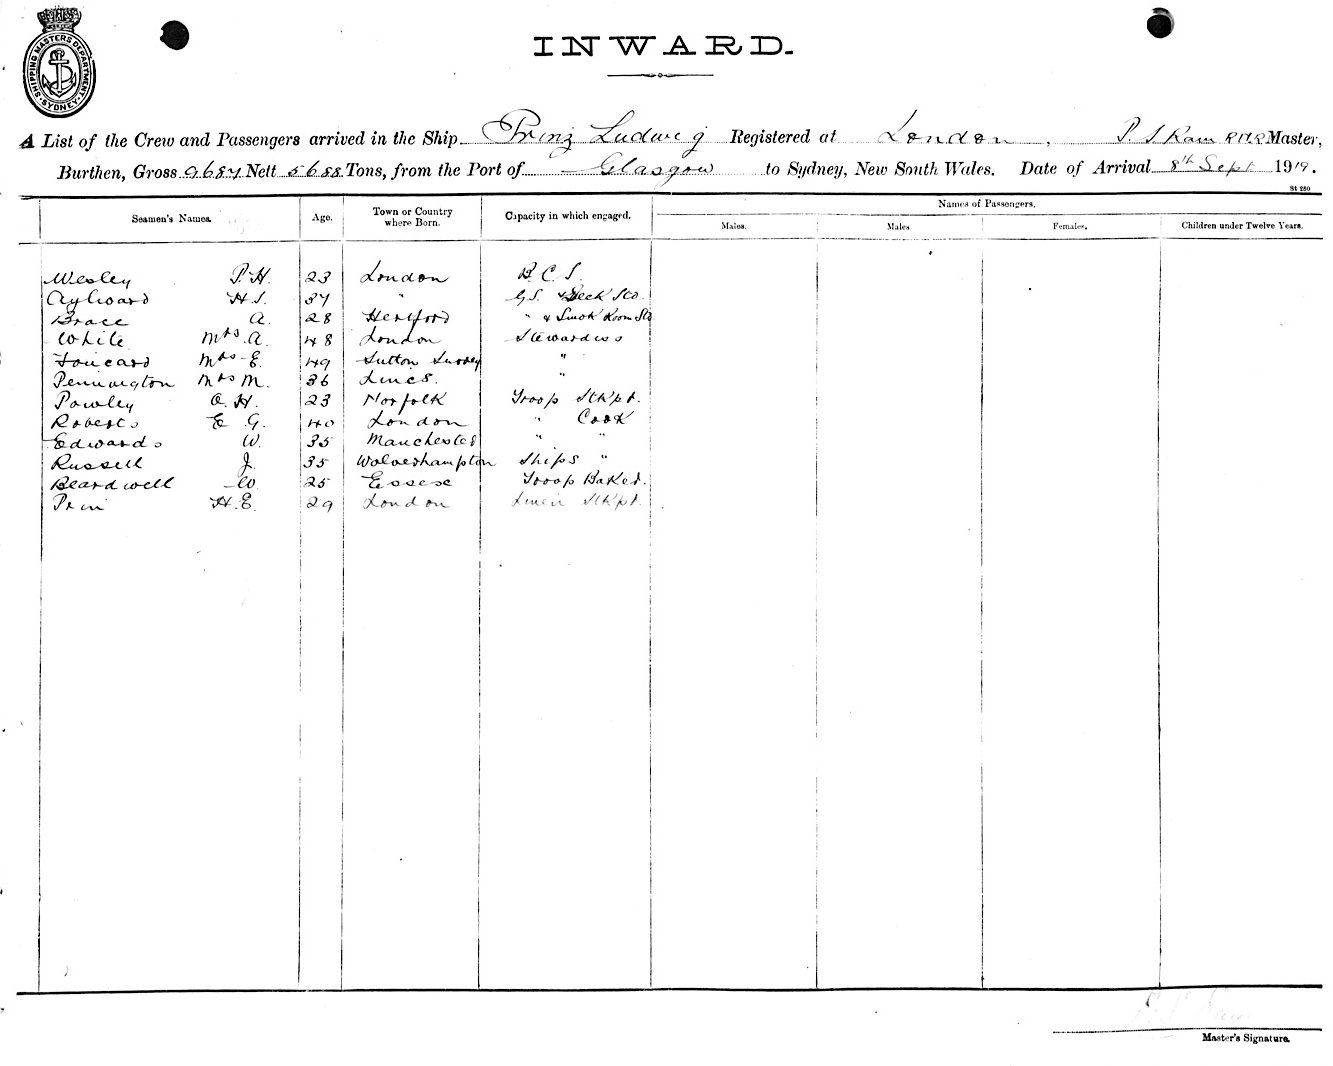 SHIPPING MASTERS DEPARTMENT SYDNEY
INWARD.
A List of the Crew and Passengers arrived in the Ship Prinz Ludwig Registered at London, P. S Ram RNR Master,
Burthen, Gross 9687 Nett 5688 Tons, from the Port of Glasgow to Sydney, New South Wales. Date of Arrival 8th Sept 1919.
St 250
Seamen's Names. Age. Town or Country where Born. Capacity in which engaged. Names of Passengers.
Males. Males Females. Children under Twelve Years.
Wesley P. H. 23 London B. C. S.
Aylward H. S. 37 " G.S. & Deck Std.
Brace A. 28 Hertford " & Smok Room Std
White Mrs A. 48 London Stewardess
Mrs E. 49 Sutton Surrey "
Pennington Mrs M. 36 Lincs. "
Powley O. H. 23 Norfolk Troop Stkpr.
Roberts E G. 40 London " Cook
Edwards W. 35 Manchester " "
Russell J. 35 Wolverhampton Ships "
Beardwell W 25 Essex Troop Baker.
Prin H. E. 29 London Linen Stkpr.
Master's Signature.